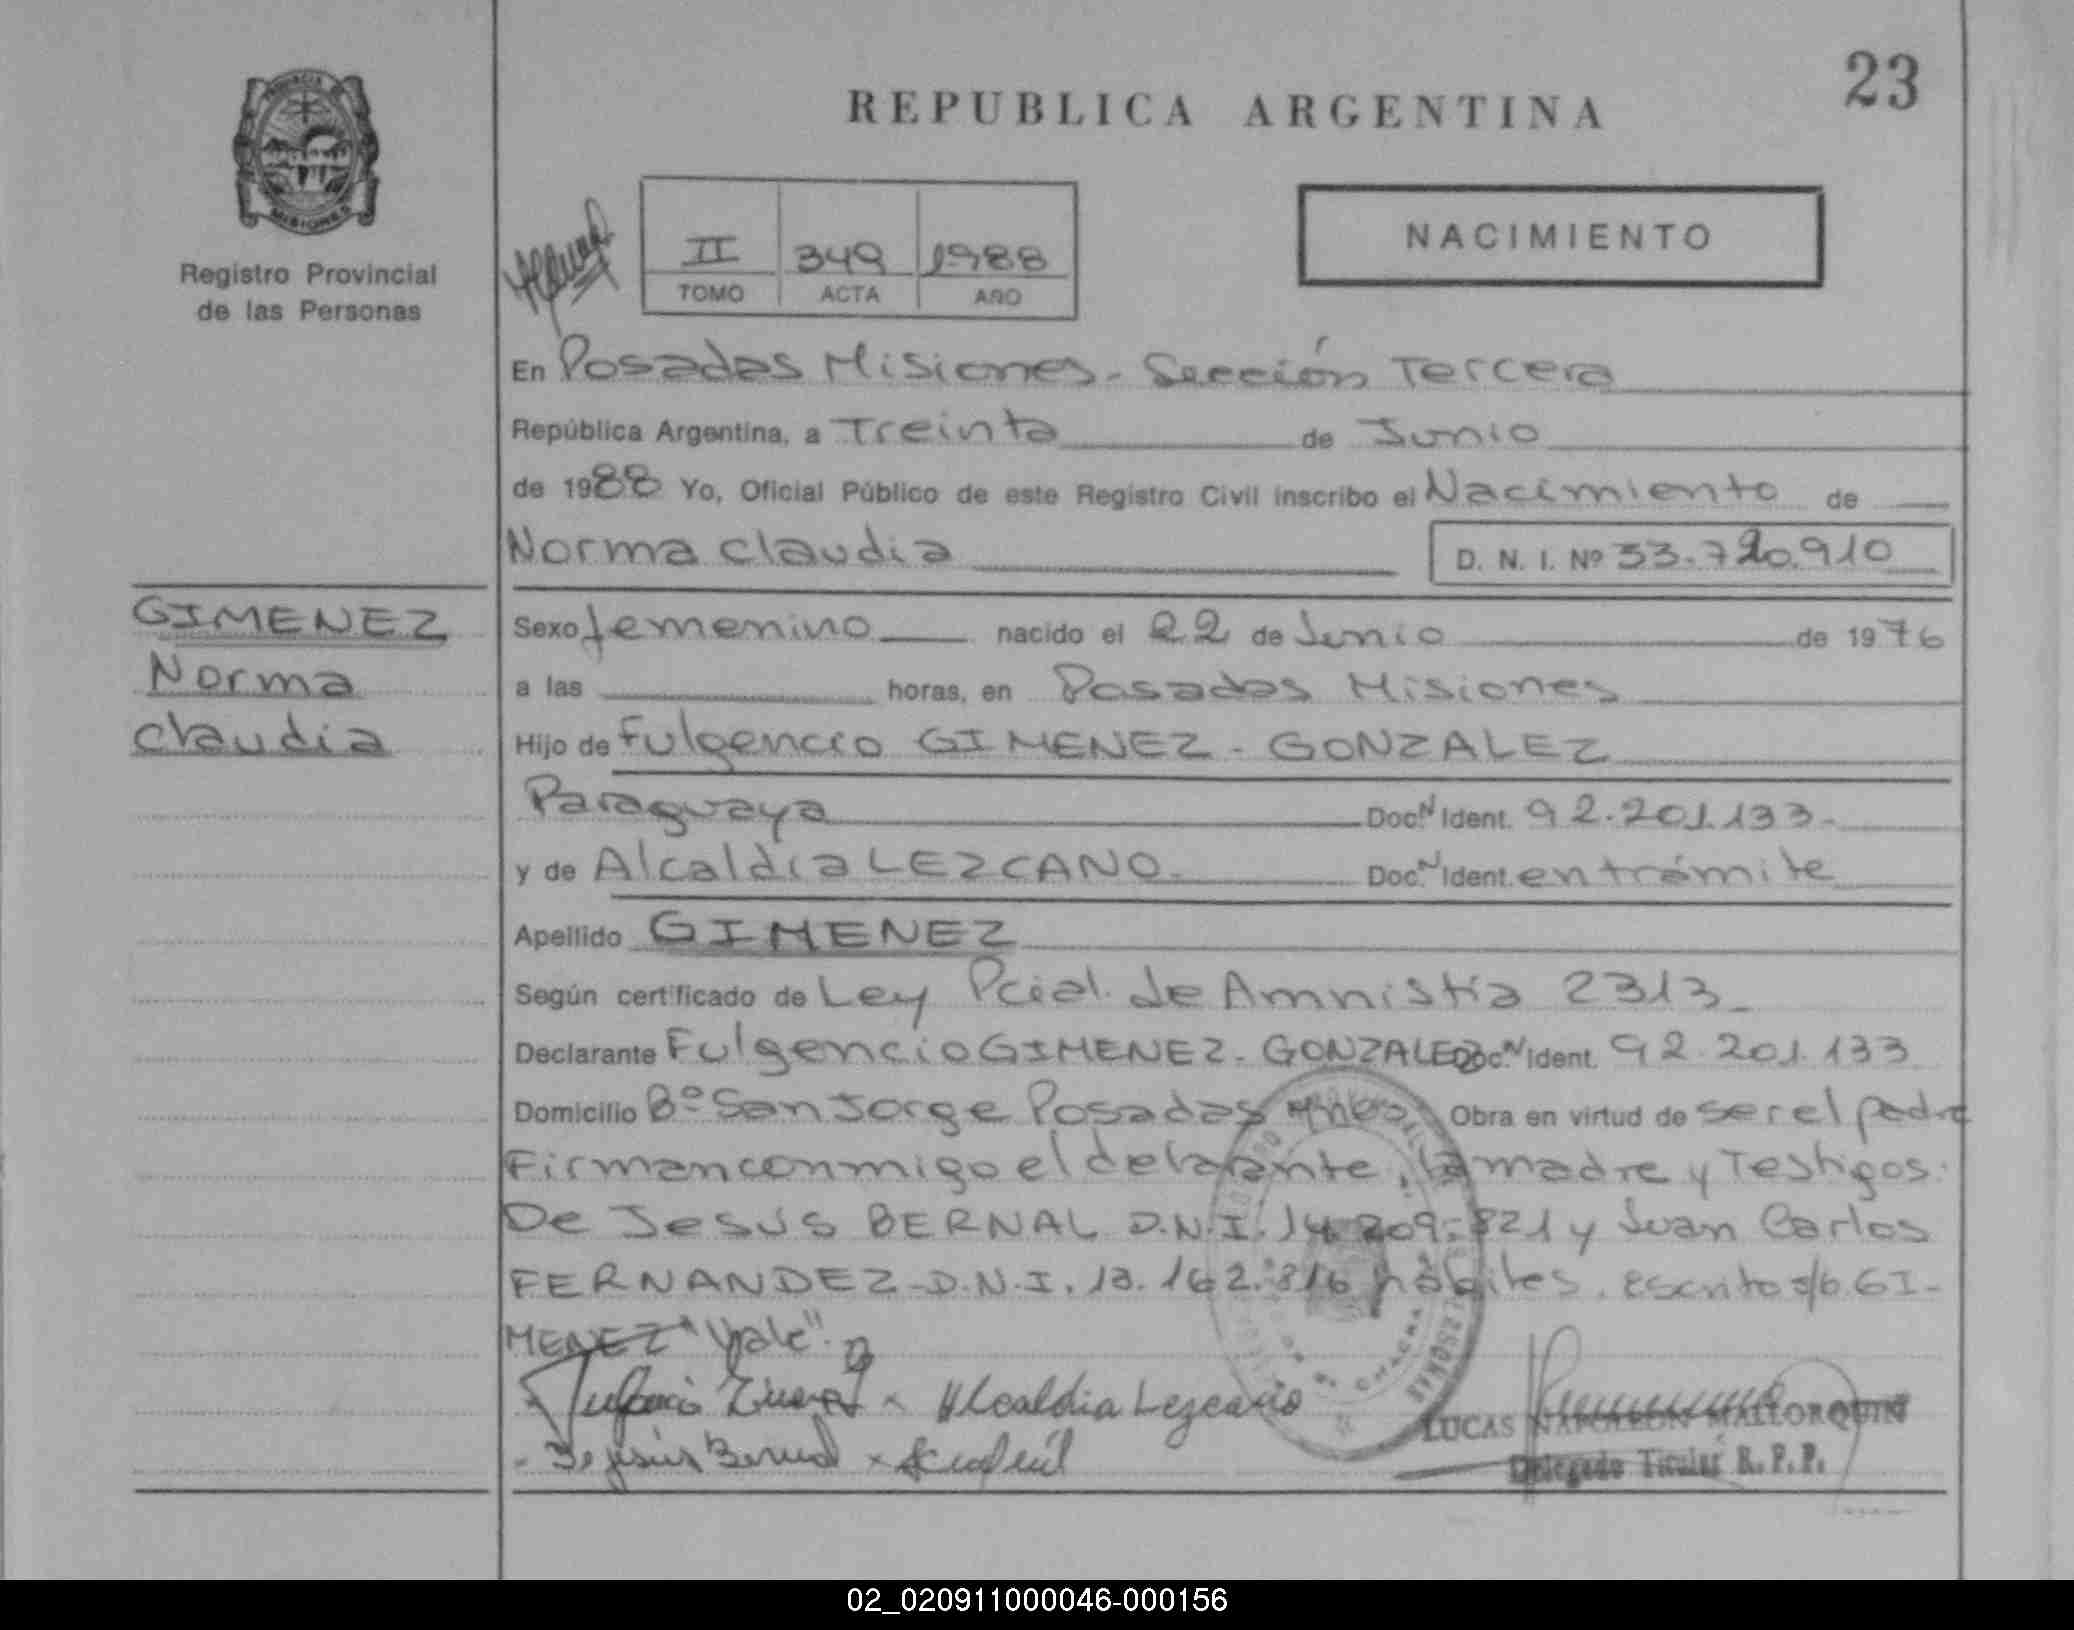 23
REPUBLICA ARGENTINA
PROVINCIA
MISIONES
Registro Provincial
de las Personas
II 349 1988
TOMO ACTA AÑO
NACIMIENTO
En Posadas Misiones - Sección Tercera
República Argentina, a Treinta de Junio
de 1988 Yo, Oficial Público de este Registro Civil inscribo el Nacimiento de
Norma Claudia D. N. I. Nº 33.720.910
GIMENEZ
Norma
Claudia
Sexo femenino nacido el 22 de Junio de 1976
a las horas, en Posadas Misiones
Hijo de Fulgencio GIMENEZ - GONZALEZ
Paraguaya Doc. N Ident. 92.201.133-
y de Alcaldia LEZCANO. Doc. N Ident. en trámite
Apellido GIMENEZ
Según certificado de Ley Pcial. de Amnistía 2313_
Declarante Fulgencio GIMENEZ - GONZALEZ Doc. N Ident. 92.201.133
Domicilio Bº San Jorge Posadas Mnes Obra en virtud de ser el padre
Firman conmigo el delarante, la madre y Testigos.
De Jesús BERNAL D.N.I. 14.209.821 y Juan Carlos
FERNANDEZ - D.N.I. 13.162.816 hábiles. escrito s/b GI-
MENEZ "Vale".
Fulgencio Gimenez x Alcaldia Lezcano
- De jesús Bernal x
LUCAS NAPOLEON MALLORQUIN
Delegado Titular R. P. P.
02_020911000046-000156